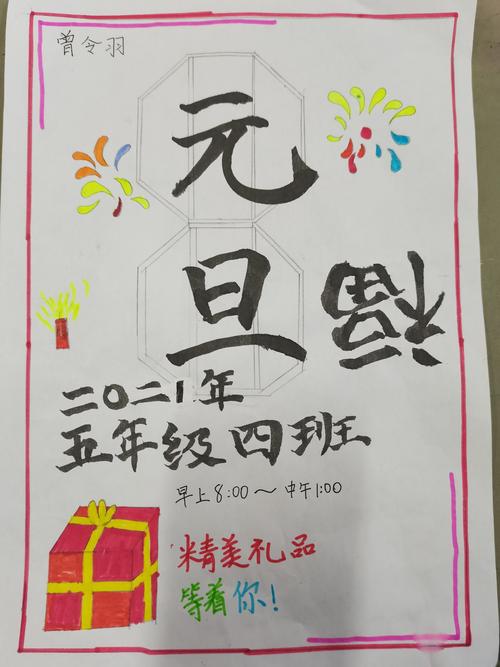 曾令羽
元
旦
福
二〇二1年
五年级四班
早上8:00～中午1:00
精美礼品
等着你!